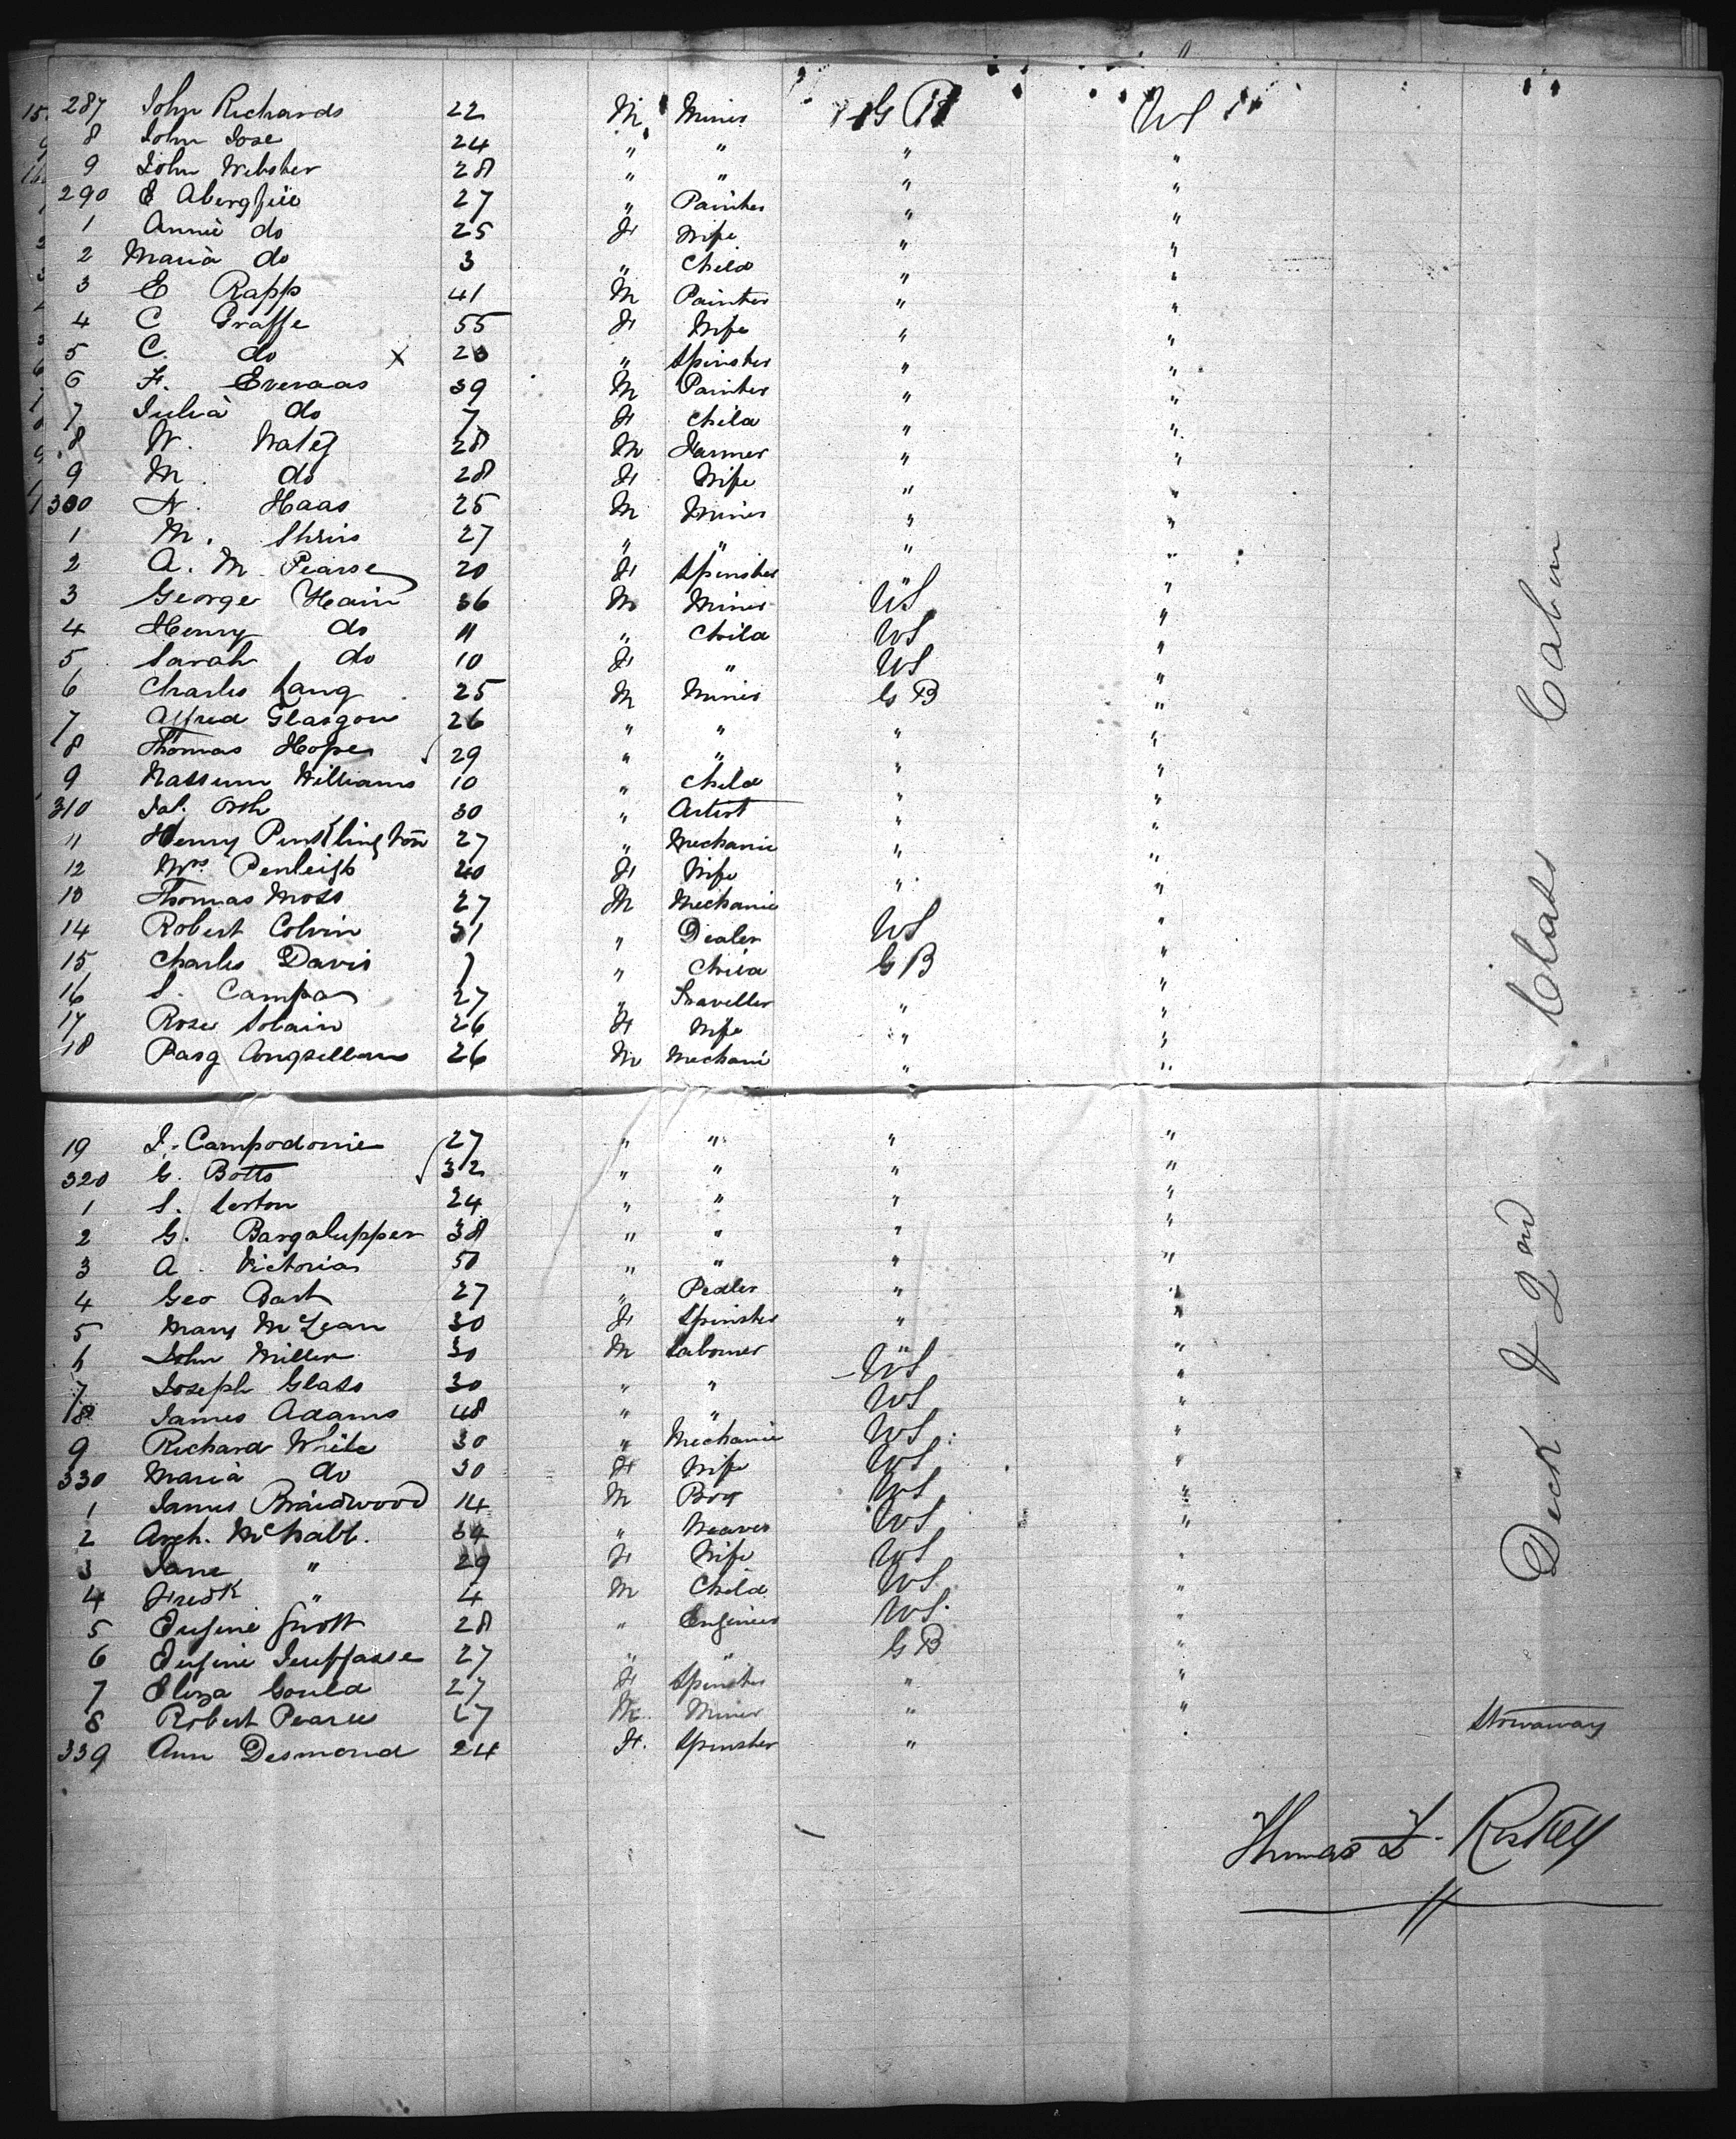 287 John Richards 22 M Miner G B US
8 John Jose 24 " " " "
9 John Webster 28 " " " "
290 E 27 " Painter " "
1 Annie do 25 F Wife " "
2 Maria do 3 " Child " "
3 E Rapp 41 M Painter " "
4 C Graffe 55 F Wife " "
5 C. do X " Spinster " "
6 F. Everaas 39 M Painter " "
7 Julia do 7 F Child " "
8 W. 28 M Farmer " "
9 M. do 28 F Wife " "
300 N. Haas 25 M Miner " "
1 M. 27 " " " "
2 A. M. Pearse 20 F Spinster " "
3 George Hain 36 M Miner US "
4 Henry do 11 " Child US "
5 Sarah do 10 F " US "
6 Charles Lang 25 M Miner G B "
7 Alfred Glasgow 26 " " " "
8 Thomas Hope 29 " " " "
9 Williams 10 " Child " "
310 Jas. Orth 30 " Artist " "
11 Henry 27 " Mechanic " "
12 Mrs Penleigh 40 F Wife " "
13 Thomas Moss 27 M Mechanic " "
14 Robert Colvin 31 " Dealer US "
15 Charles Davis 7 " Child G B "
16 S. Campa 27 " Traveller " "
17 Rose Solain 26 F Wife " "
18 26 M Mechani " "
19 J. Campodonic 27 " " " "
320 G. Botto 32 " " " "
1 S. 24 " " " "
2 G. Bargalupper 38 " " " "
3 A. Victoria 50 " " " "
4 Geo Dart 27 " Pedler " "
5 Mary McLean 30 F Spinster " "
6 John Miller 30 M Laborer US "
7 Joseph Glass 30 " " US "
8 James Adams 48 " " US "
9 Richard White 30 " Mechanic US "
330 Maria do 30 F Wife US "
1 James Braidwood 14 M Boy US "
2 Arch. McNabb. 34 " Weaver US "
3 Jane " 29 F Wife US "
4 Fredk " 4 M Child US "
5 Eugine 28 " Engineer US "
6 Eugine 27 " " G B "
7 Eliza Gould 27 F Spinster " "
8 Robert Pearce 27 M. Miner " " Stowaway
339 Ann Desmond 24 F. Spinster " "
Deck & 2nd Class Cabin
Thomas